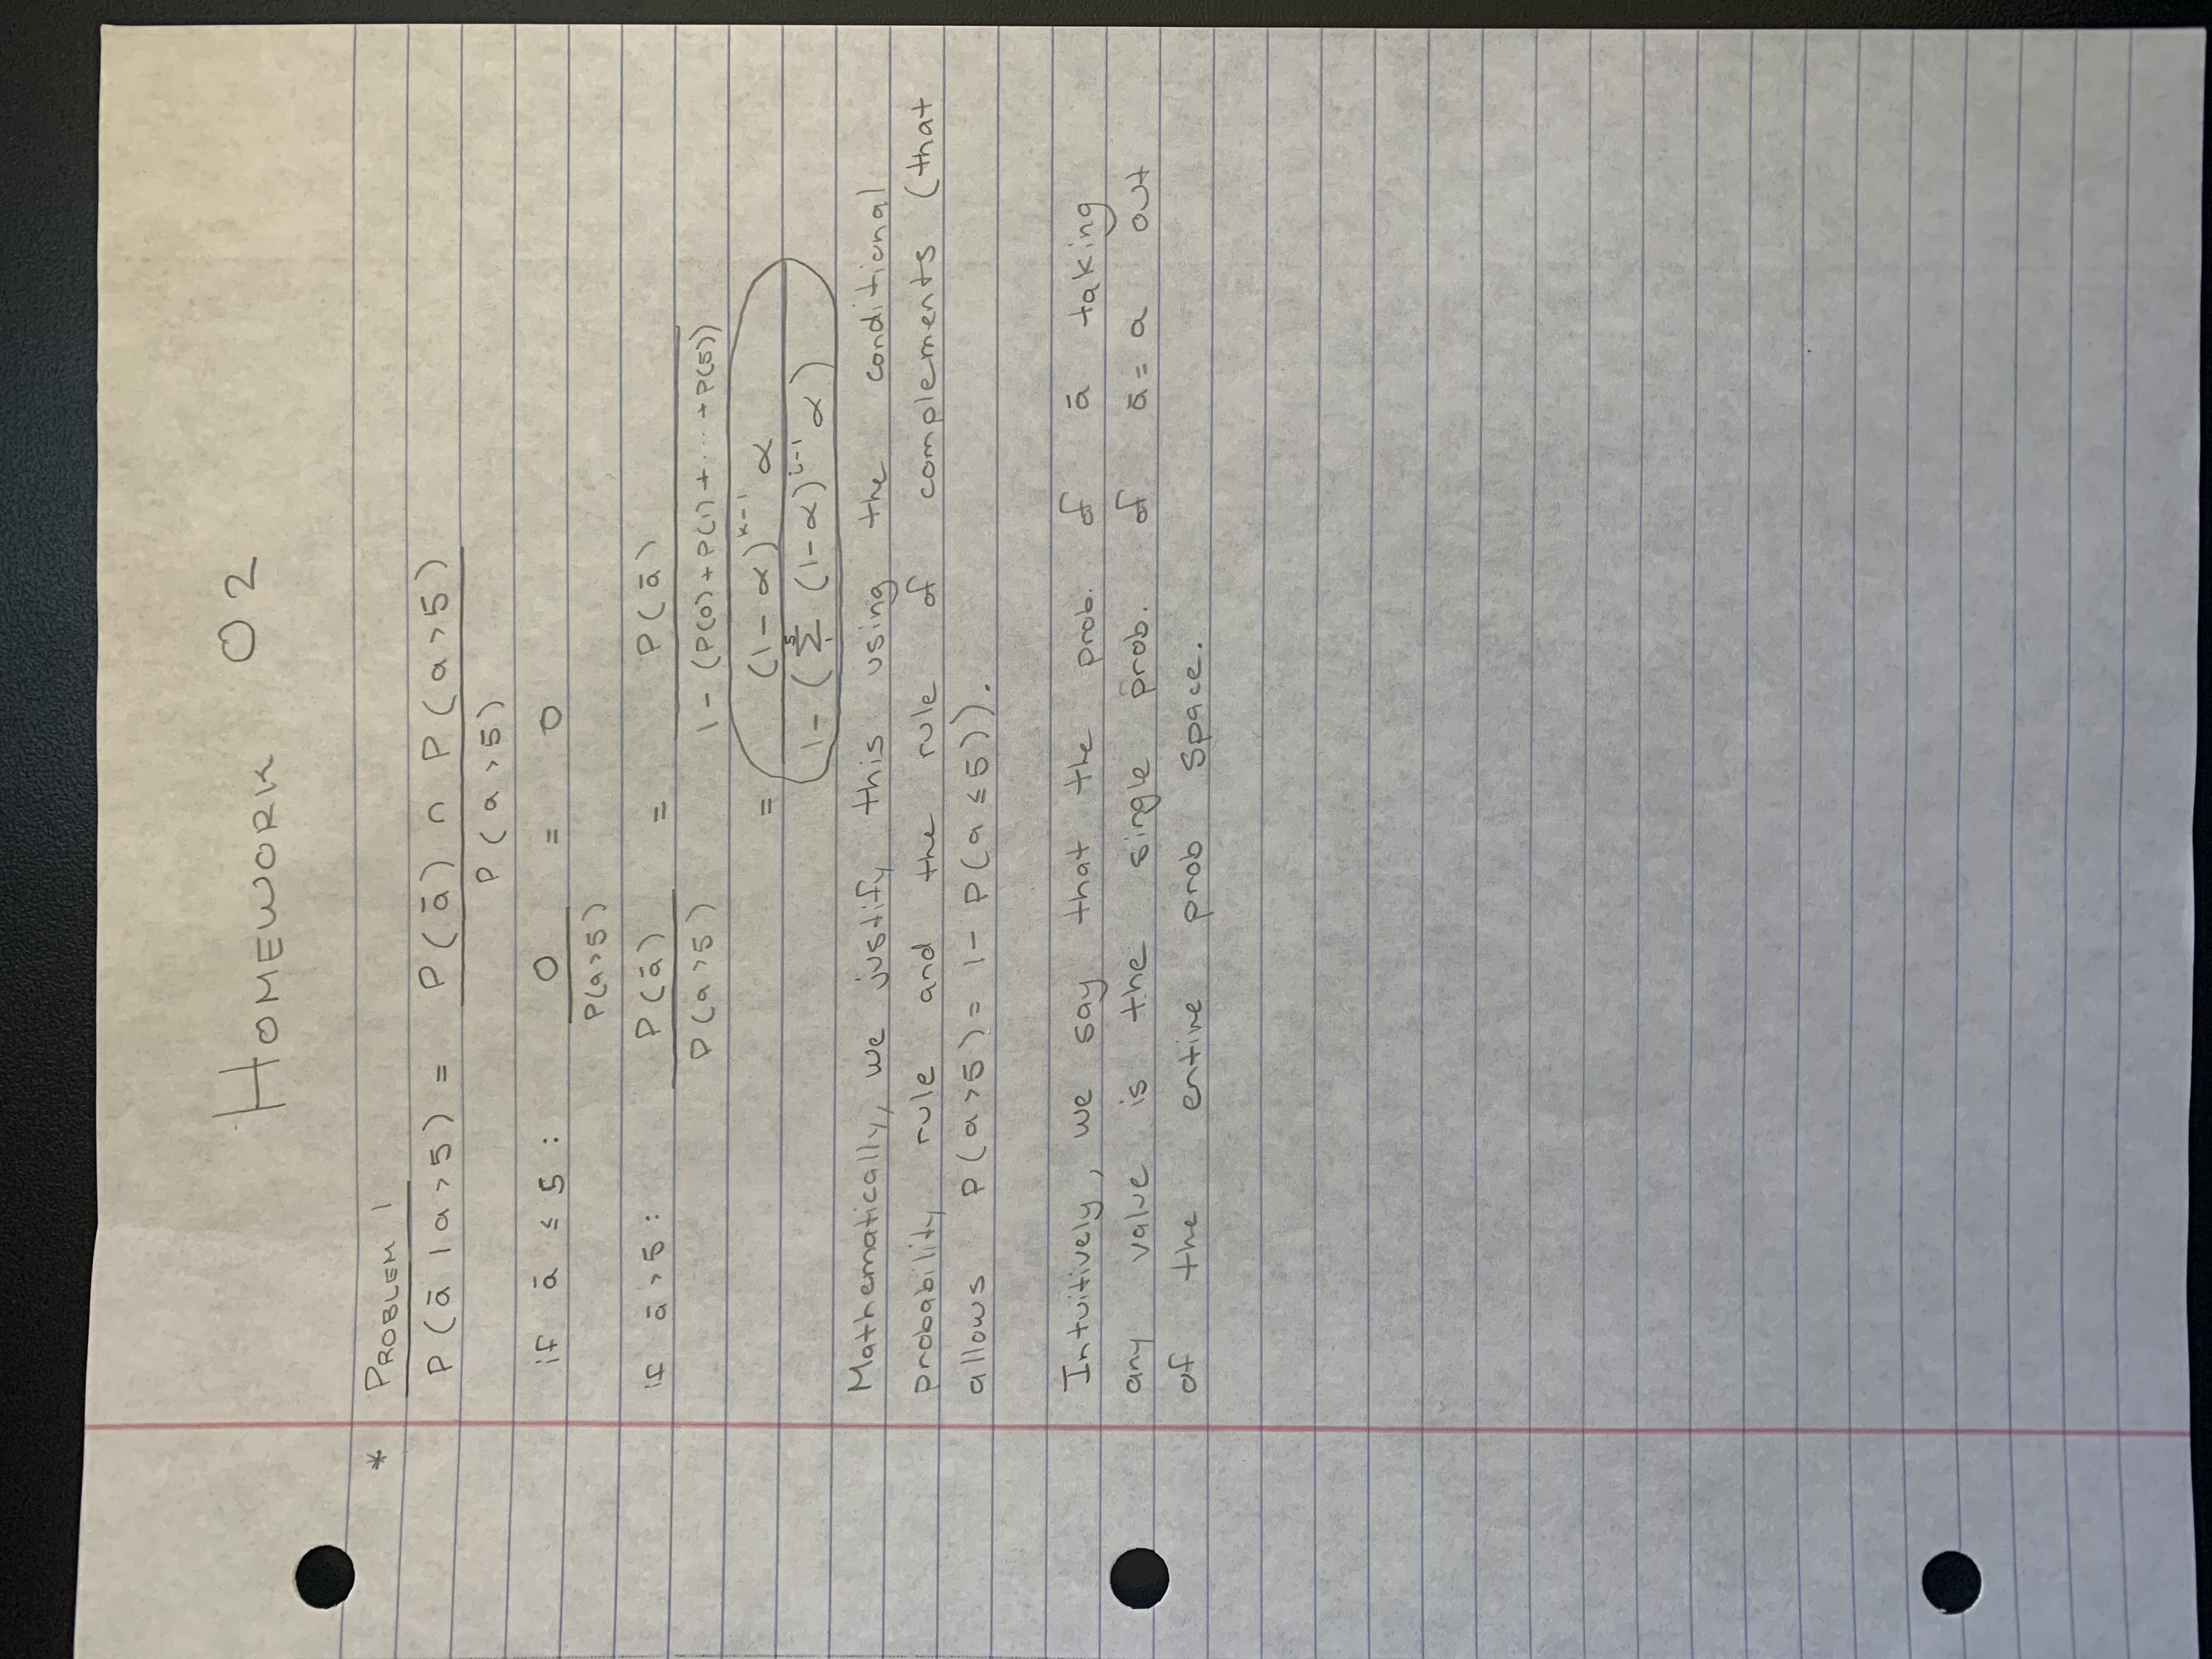 HOMEWORK 02
* PROBLEM 1
P(ā | a > 5) = P(ā) ∩ P(a > 5)
P(a > 5)
if ā ≤ 5 : 0 = 0
P(a > 5)
if ā > 5 : P(ā) = P(ā)
P(a > 5) 1 - (P(0) + P(1) + ... + P(5))
= (1 - α)^{k-1} α
1 - (∑_{1}^{5} (1 - α)^{i-1} α)
Mathematically, we justify this using the conditional
probability rule and the rule of complements (that
allows P(a > 5) = 1 - P(a ≤ 5)).
Intuitively, we say that the prob. of ā taking
any value is the single prob. of ā = a out
of the entire prob space.